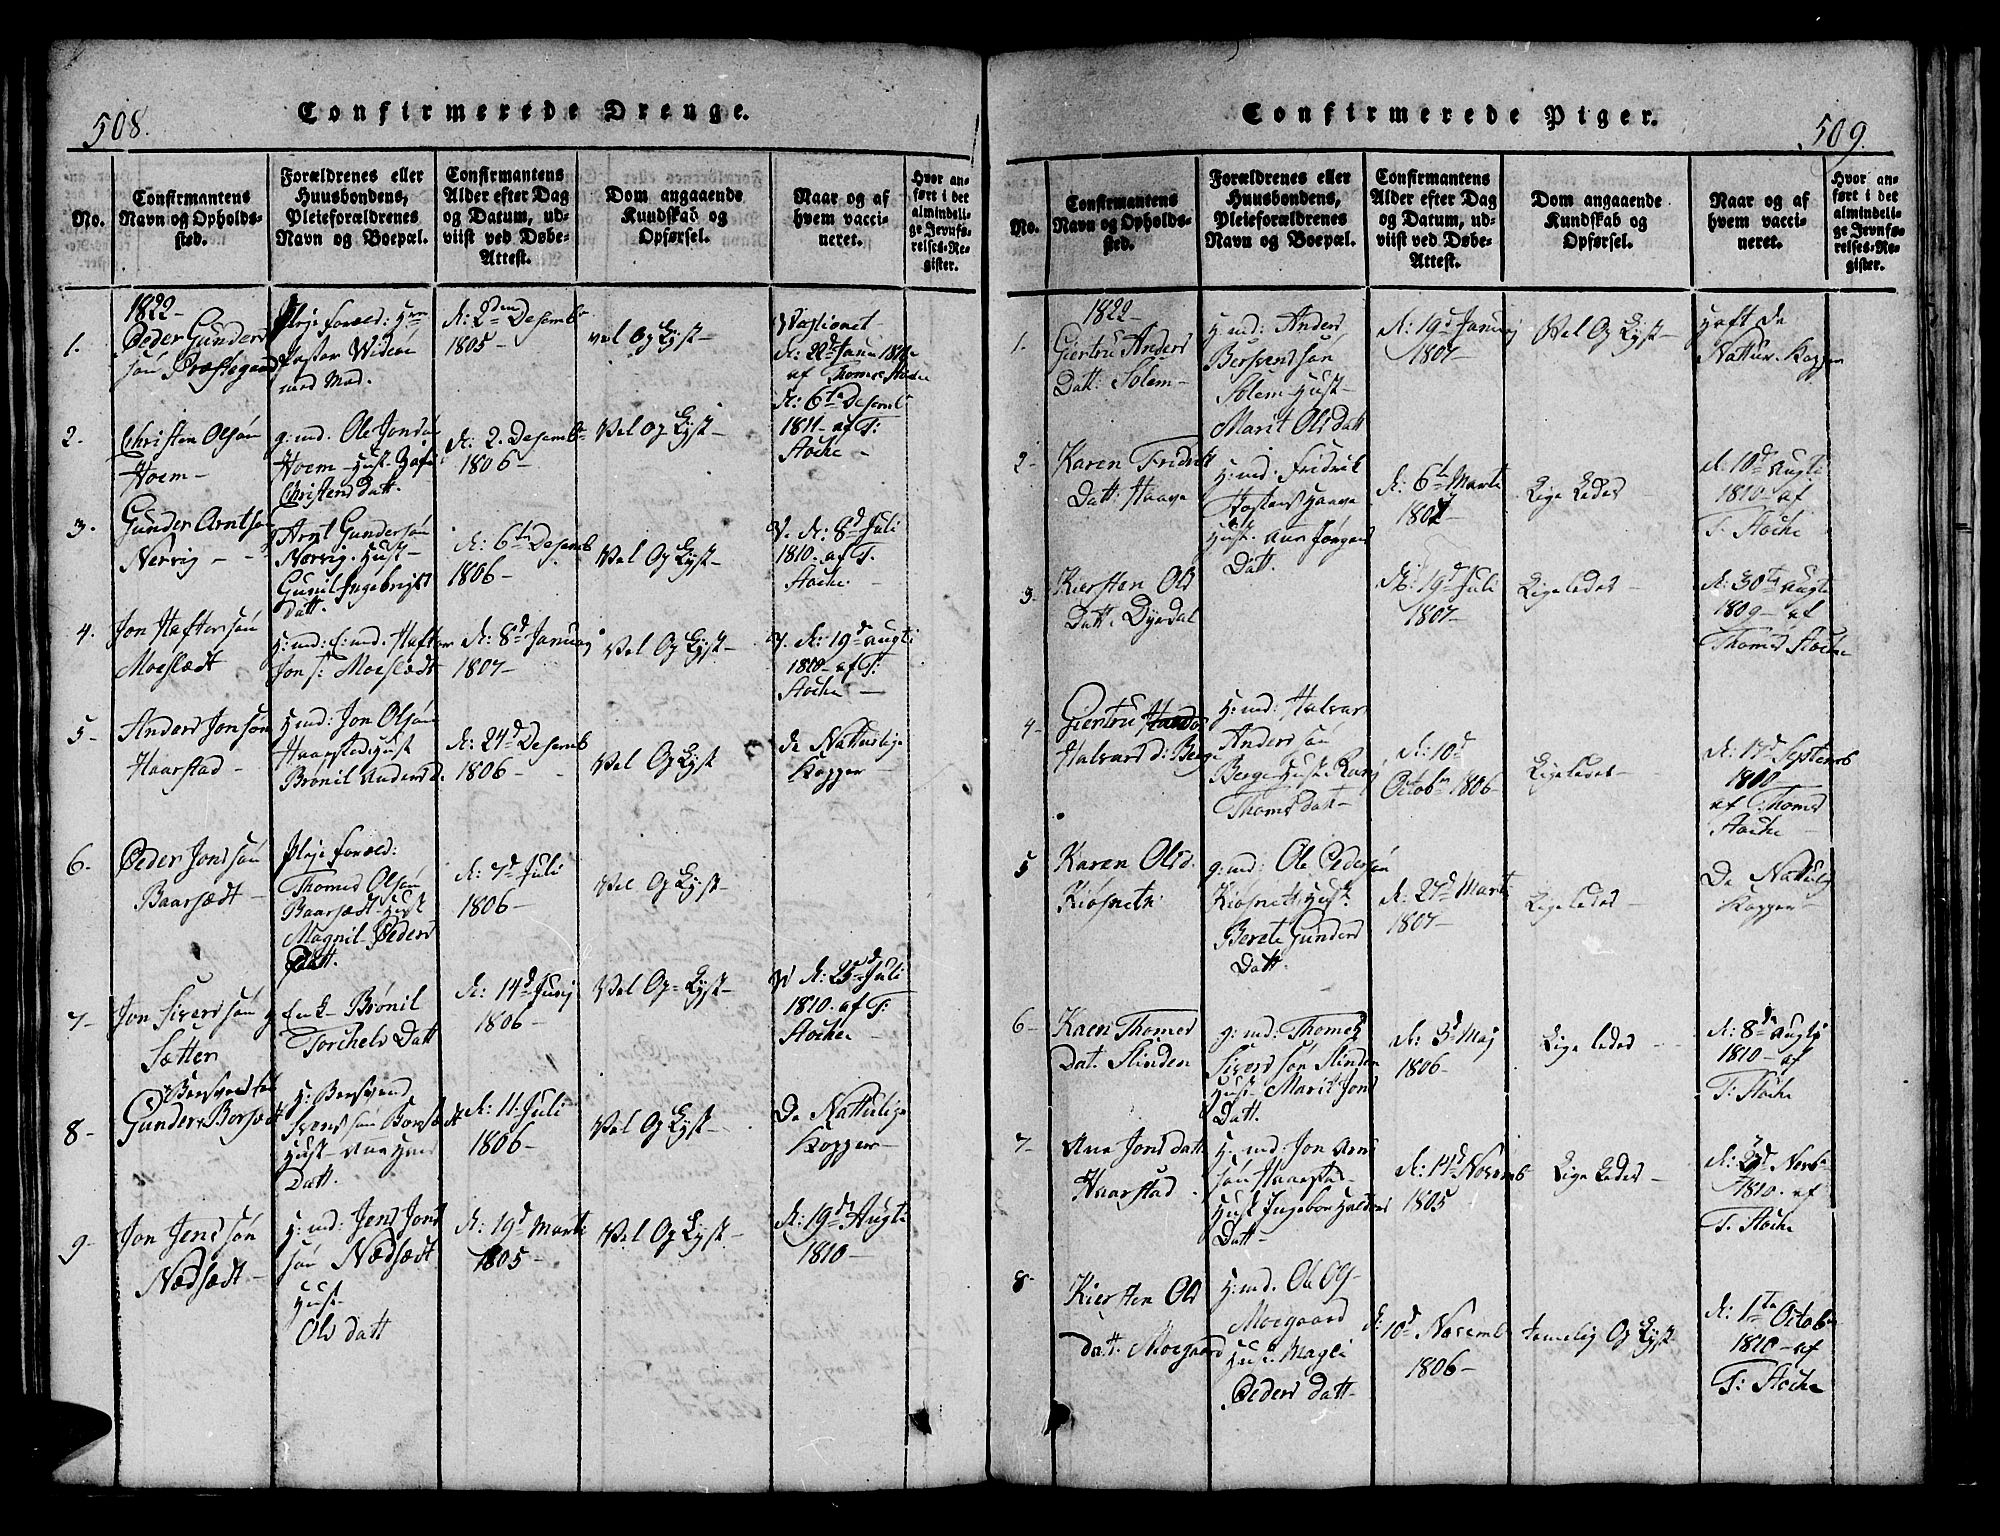 508.
Confirmerede Drenge.
No.
Confirmantens
Navn og Opholds-
sted.
Forældrenes eller
Huusbondens,
Pleieforældrenes
Navn og Boepæl.
Confirmantens
Alder efter Dag
og Datum, ud-
viist ved Døbe-
Attest.
Dom angaaende
Kundskab og
Opførsel.
Naar og af
hvem vacci-
neret.
Hvor an-
ført i det
almindeli-
ge Jevnfø-
relses-Re-
gister.
1822-
1.
Peder Gunders
søn Præstegaard
Pleje foræld: Hrr
Pastor Wideøe
med Mad.
d: 2den Desemb
1805-
vel Og Lyst-
d: 22d Janu
af Thomes Stoche
2.
Christen Olsøn
Hoem-
g: md. Ole Jonsøn
Hoem Hust.
Christens Datt.
d: 2. Desemb-
1806-
Vel Og Lyst-
d: 6te Desemb
1811 af T:
Stoche -
3.
Gunder Arntsøn
Nervig -
Arnt Gundersøn
Nervig. Hust-
Gunil Ingebrigt
datt.
d: 6te Desemb
1806-
Vel Og Lyst-
V. d: 8d Juli
1810. af T.
Stoche
4.
Jon Haftorsøn
Moeslædt
H: md: Haftor
Jons: Moeslædt
d: 8d Januarj
1807-
Vel Og Lyst-
V. d: 19d Augti
1810- af T:
Stoche -
5-
Anders Jonsøn
Haarstad -
H: md: Jon Olsøn
Haarsted. Hust
Brønil Anders d.
d: 24d Desemb
1806-
Vel Og Lyst
De Natturlige
Kopper-
6.
Peder Jonssøn
Baarsædt -
Pleje foræld:
Thomes Olsøn
Baarsædt Hust
Magnil Peders
Datt.
d: 7d Juli
1806-
Vel Og Lyst-
7-
Jon Siversøn
Sætter
Enk- Brønil
Torchels Datt
d: 14d Junj
1806-
Vel Og Lyst-
V d: 25d Juli
1810. af T:
Stoche -
8-
Bersvendsøn
Gunder Borsædt
H: Bersvend
Siversøn Borsædt
Hust- Ane
Datt.
d: 11. Juli
1806-
Vel Og Lyst-
De Natturlige
Kopper-
9-
Jon Jenssøn
Nædsædt -
H: md: Jens Jons
søn Nædsædt
Hust-
Ols datt
d: 19d Marti
1805-
Vel Og Lyst-
d: 19d Augti
1810-
Confirmerede Piger.
509.
No.
Confirmantens
Navn og Opholds-
sted.
Forældrenes eller
Huusbondens,
Pleieforældrenes
Navn og Boepæl.
Confirmantens
Alder efter Dag
og Datum, ud-
viist ved Døbe-
Attest.
Dom angaaende
Kundskab og
Opførsel.
Naar og af
hvem vacci-
neret.
Hvor an-
ført i det
almindeli-
ge Jevnfø-
relses-Re-
gister.
1822-
1-
Giertru Anders
Datt: Solem-
H: md: Anders
Bersvendsøn
Solem Hust-
Marit Ols datt
d: 19d Januarj
1807-
Vel Og Lyst-
Haft de
Nattur. Kopper
2-
Karen Fridrik
Datt: Haave
H: md: Fridrik
Haave
Hust- Ane Jørgens
Datt.
d: 6te Marti
1807-
Lige Ledes
d: 10d Augti
1810- af
T. Stoche
3-
Kiersten Ols
Datt. Dyrdal
d: 19d Juli
1807-
Ligeledes -
d: 30te Augti
1809- af
Thomes Stoche
4-
Giertru
Halvars d: Berge
H: md: Halvar
Anderssøn
Berge Hust- Ranj
Thomes datt-
d: 10d
Octobr 1806-
Ligeledes -
d: 17d Septemb
1810
af Thomes
Stoche -
5
Karen Olsd.
Kiøsnetr.
g: md: Ole Pedersøn
Kiøsnetr Hust.
Berete Gunders
Datt.
d: 27d Marti
1807-
Ligeledes -
De Natturlig
Kopper-
6-
Karen Thomes
Dat. Slinden
g: md: Thomes
Siverssøn Slinden
Hust- Marit Jons
Datt.
d: 3d Maj
1806-
Lige ledes -
d: 8d Augtj
1810- af
T: Stoche
7-
Ane Jons datt
Haarstad .
H: md: Jon Arns
søn Haarstad
Hust Ingebor
Datt-
d: 14d Novemb
1805
Lige Ledes-
1810. af
T. Stoche
8-
Kiersten Ols
datt. Moegaard
H: md. Ole
Moegaard
Hust. Magli
Peders datt-
d: 10d Novemb
1806-
temelig Og Lyst
d: 1te Octob
1810- af
T: Stoche